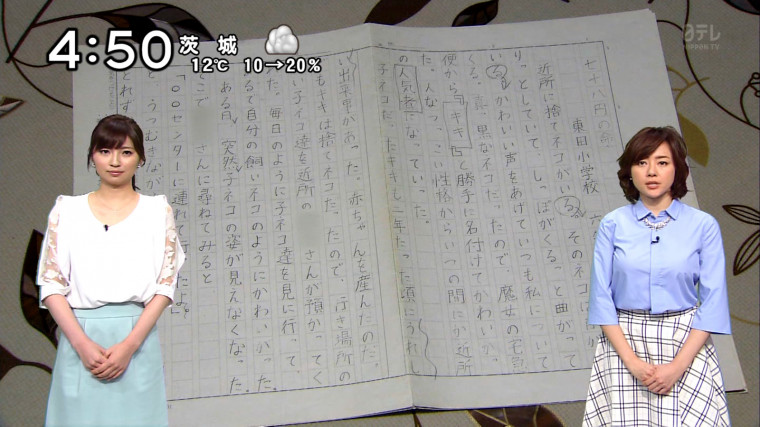 4:50
茨城
12℃ 10→20%
日テレ
NIPPON TV
七十八円の命
東田小学校 六
近所に捨てネコがいる。そのネコは
りっとしていて、しっぽがくるっと曲がって
いる。かわいい声をあげていつも私について
くる。真っ黒なネコだったので、魔女の宅急
便から「キキ」と勝手に名付けてかわいがっ
た。人なつっこい性格からいつの間にか近所
の人気者になっていった。
子ネコだったキキも二年たった頃にうれし
い出来事があった。赤ちゃんを産んだのだ。
もキキは捨てネコだったので、行き場所の
い子ネコ達を近所の さんが預かってく
た。毎日のように子ネコ達を見に行って、
るで自分の飼いネコのようにかわいがった。
ある日、突然子ネコの姿が見えなくなった。
こで さんに尋ねてみると
「〇〇センターに連れて行ったよ。」
と、うつむきなが
とれず